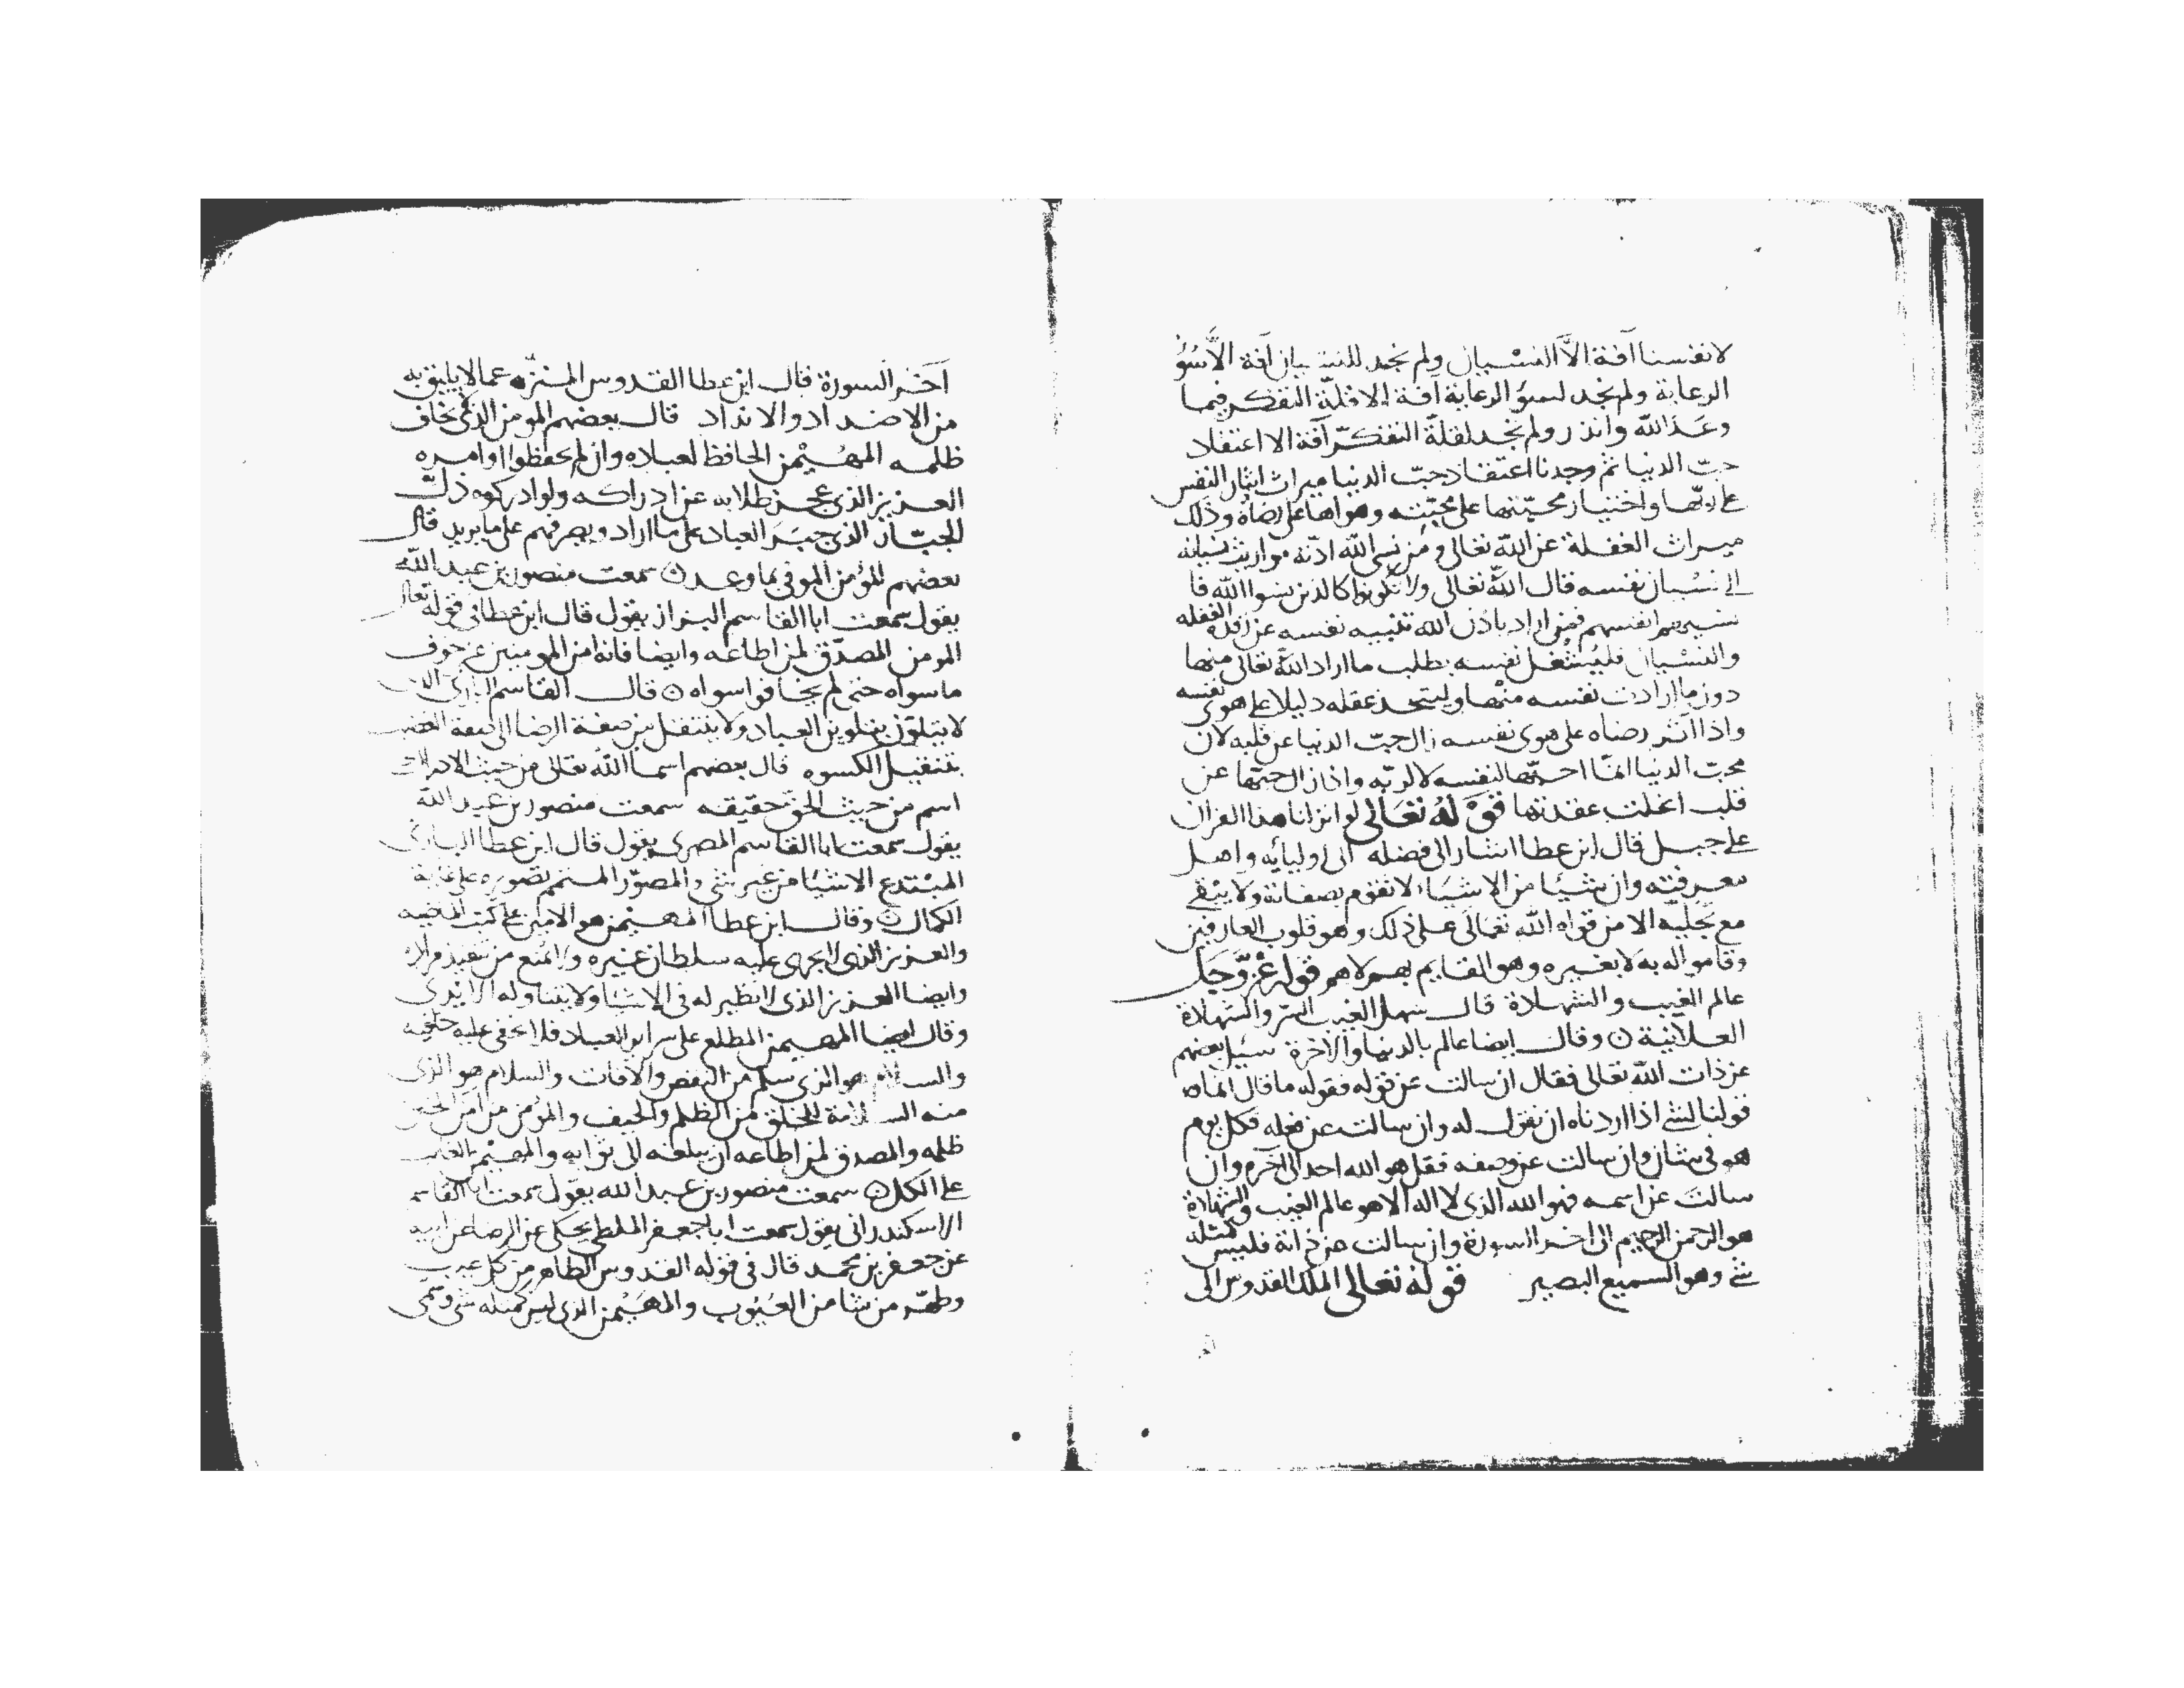 لانفسنا آفة الاّ النسْيان ولم نجد للنسيان آفة الاّ سُوُ
الرعاية ولم نجد لسوُ الرعاية آفة الا قلّة التفكر فيما
وعَد الله وانذر ولم نجد لقلّة التفكّر آفة الا اعتقاد
حبّ الدنيا ثم وجدنا اعتقاد حبّ الدنيا ميراث ايثار النفس
على ربّها واختيار محبّتها على محبّته وهواها على رضاه وذلك
ميراث الغفلة عن الله تعالى ومن نسى الله ادّته مواريث نسيانه
الى نسْيان نفسه قال الله تعالى ولا تكونوا كالذين نسوا الله فا
نسيهم انفسهم فمن اراد باذن الله تنبيه نفسه عن رقدة الغفله
والنسْيان فليُشغل نفسه بطلب ما اراد الله تعالى منها
دون ما ارادت نفسه منْها وليتخذ عقله دليلا على هوى نفسه
واذا آثر رضاه على هوى نفسه زال حبّ الدنيا عن قلبه لان
محبّ الدنيا انمّا احبّها لنفسه لا لربّه واذا زال حبّها عن
قلب انحلت عقدتها قوْلهُ تعَالى لو انزلنا هذا القران
على جبل قال ابن عطا اشار الى فضله الى اوليائه واهل
معرفته وان شيئا من الاشيَاء لا تقوم بصفاته ولا يبْقى
مع تجليه الا من قواه الله تعَالى على ذلك وهو قلوب العارفين
وقاموا له به لا بغيره وهو القايم بهم لا هم قوله عزّ وجَل
عالم الغيب والشهادة قال سهل الغيب السرّ والشهادة
العلانية ۞ وقال ايضا عالم بالدنيا والاخرة سيُل بعضهم
عن ذات الله تعالى فقال ان سالت عن قوله فقوله ما قال انما
قولنا لشئ اذا اردناه ان نقول له وان سالت عن فعله فكل يوم
هو فى شان وان سالت عن وصفه فقل هو الله احد الى آخره وان
سالتَ عن اسمه فهو الله الذى لا اله الا هو عالم الغيب والشهادة
هو الرحمن الرحيم الى اخر السورة وان سالت عن ذاته فليس كمثله
شئ وهو السميع البصير قوله تعَالى الملك القدوس الى
آخر السورة قال ابن عطا القدوس المنزّه عما لا يليق به
من الاضداد والانداد قال بعضهم المومن الذى لا يخاف
ظلمه المهُيْمن الحافظ لعباده وان لم يحفظوا اوامره
العزيز الذى عجز طلابه عن ادراكه ولو ادركوه ذلّ
الجبّار الذى جبَرَ العباد على ما اراد ويصرفهم على ما يريد قال
بعضهم المؤمن الموفى بما وعد ۞ سمعت منصور بن عبد الله
يقول سمعت ابا القاسم البزاز يقول قال ابن عطا فى قوله تعالى
المومن المصدّق لمن اطاعه وايضا فانه امن المومنين عن خوف
ما سواه حتى لم يخافوا سواه ۞ قال القاسم البارئ الذى
لا يتلوّن بتلوين العباد ولا ينتقل من صفة الرضا الى صفة الغضب
قال بعضهم اسما الله تعالى من حيث الادراك
اسم من حيث الحقّ حقيقه سمعت منصور بن عبد الله
يقول سمعت ابا القاسم المصرى يقول قال ابن عطا البارئ
المبْتدع الاشيَا من غير شئ والمصوّر المتمم تصويره على غاية
الكمال ۞ وقال ابن عطا المهيمن هو الامين على
والعزيز الذى لا يجرى عليه سلطان غيره ولا يمُنع من تنفيذ مراده
وايضا العزيز الذى لا نظير له فى الاشيا ولا يتناوله الايدى
وقال ايضا المهيمن المطلع على سراير العباد فلا تخفى عليه خافيه
والسلام هو الذى سلم من النقص والآفات والسلام هو الذى
منه السلامة للخلق من الظلم والحيف والمؤمن من امن الخلق من
ظلمه والمصدق لمن اطاعه ان يبلغه الى ثوابه والمهيْمن
على الكل ۞ سمعت منصور بن عبد الله يقول سمعت ابا القاسم
الاسكندرانى يقول سمعت ابا جعفر الملطى يحكى عن الرضا عن ابيه
عن جعفر بن محمد قال فى قوله القدوس الطاهر من كل عيب
وطهّر من شا من العُيُوب والمهَيْمن الذى ليس كمثله شئ وسمى